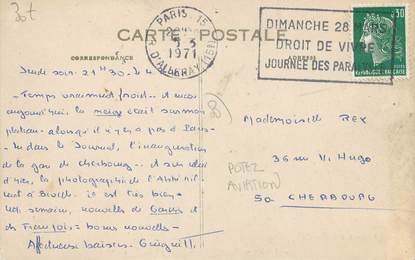 30f
CARTE POSTALE
CORRESPONDANCE
ADRESSE
PARIS. 15
5-3
1971
R. D'ALLERAY (15e)
DIMANCHE 28 MARS
DROIT DE VIVRE
JOURNÉE DES PARALYSÉS
0.30
REPUBLIQUE FRANCAISE
Jeudi soir. 21H30. le 4
- Temps vraiment froid - et nous
aujourd'hui, la neige était sur mon
plateau - alors qu'il n'y en a pas à Paris -
- Vu dans le Journal, l'inauguration
de la gare de Cherbourg - et sur celui
d'hier, la photographie de l'Abbé
à c'est très bien -
semaine, nouvelles de et
des François = bonnes nouvelles -
Affectueux baisers.
Mademoiselle REY
36 rue V. Hugo
50 CHERBOURG
POTEZ
AVIATION